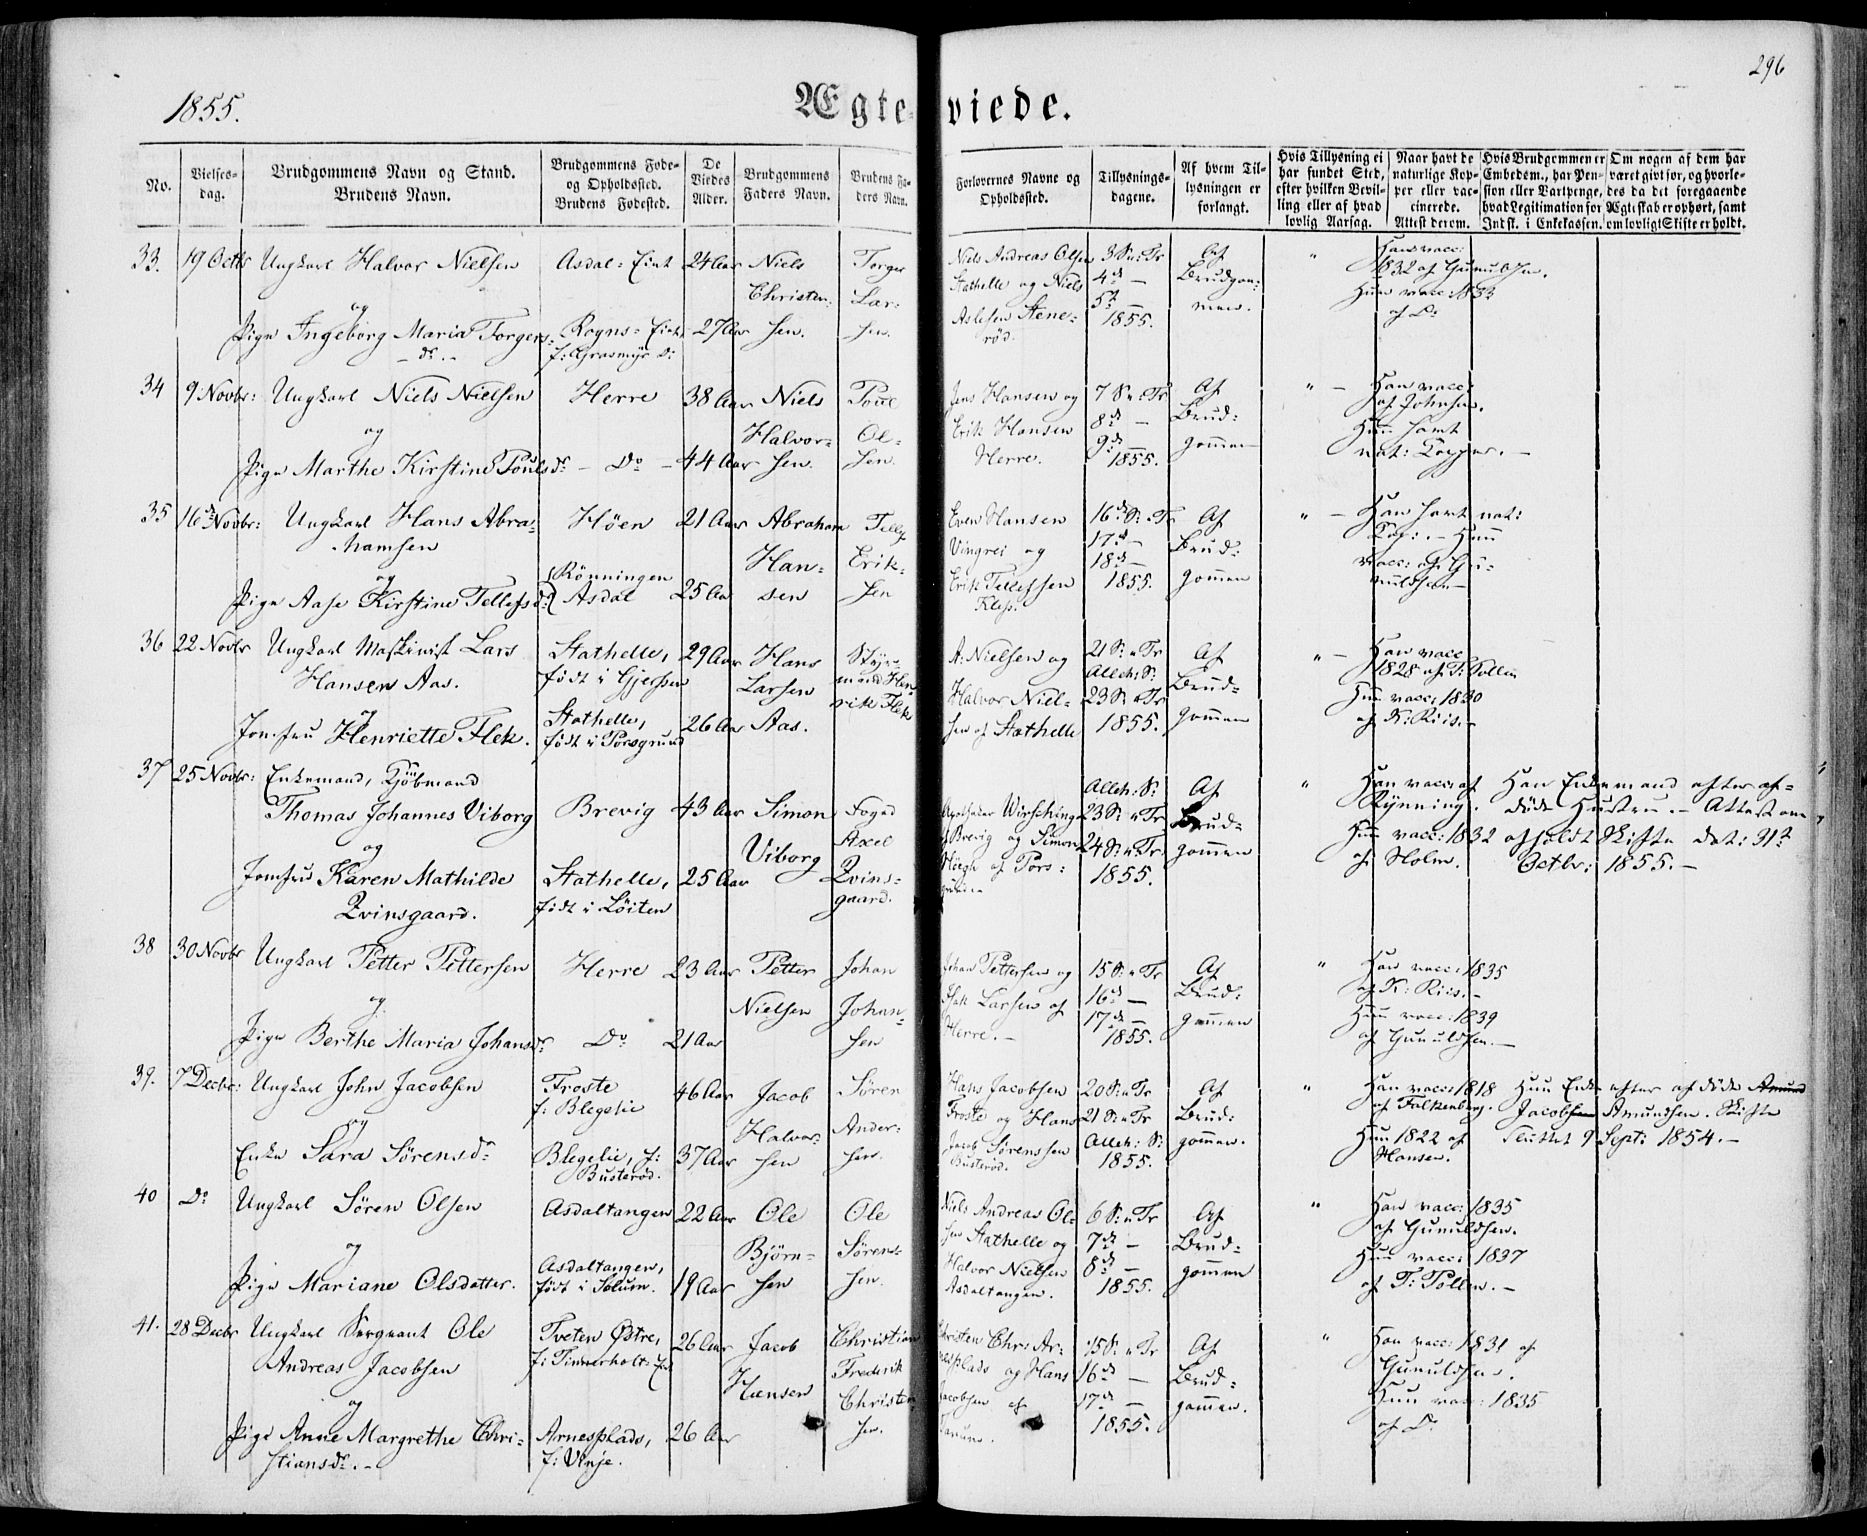 296
1855.
Ægteviede.
No.
Vielsesdag.
Brudgommens Navn og Stand.
Brudens Navn.
Brudgommens Føde-
og Opholdssted.
Brudens Fødested.
De
Viedes
Alder.
Brudgommens
Faders Navn.
Brudens Fa-
ders Navn.
Forlovernes Navne og
Opholdssted.
Tillysnings-
dagene.
Af hvem Til-
lysningen er
forlangt.
Hvis Tillysning ei
har fundet Sted,
efter hvilken Bevil-
ling eller af hvad
lovlig Aarsag.
Naar havt de
naturlige Kop-
per eller vac-
cinerede.
Attest derom.
Hvis Brudgommen er
Embedsm., har Pen-
sion eller Vartpenge,
hvad Legitimation for
Indsk. i Enkekassen.
Om nogen af dem har
været gift før, og hvorle-
des da det foregaaende
Ægteskab er ophørt, samt
om lovligt Skifte er holdt.
33. 19 Octbr Ungkarl Halvor Nielsen
og
Pige Ingeborg Maria Torgers-
dr.
Asdal-Eiet
Rogns-Eiet
f: Grasmyr D:
24 Aar
27 Aar
Niels
Christen-
sen.
Torger
Lar-
sen.
Niels Andreas Olsen
Stathelle og Niels
Aslesen Stene-
rød.
3 S: n: Tr
4de —
5te —
1855.
Af
Brudgom-
men.
"
Han vacc:
1832 af Gunulfsen.
Hun vacc: 1832
af Do
34 9 Novbr: Ungkarl Niels Nielsen
og
Pige Marthe Kirstine Poulsdr
Herre
— Do —
38 Aar
44 Aar
Niels
Halvor-
sen.
Poul
Ol-
sen.
Jens Hansen og
Erik Hansen
Herre.
7 S: n: Tr
8de —
9de —
1855.
Af
Brud-
gommen
" —
Han vacc:
af Johnsen.
Hun havt
nat: Kopper. —
35 16de Novbr: Ungkarl Hans Abra-
hamsen
og
Pige Aase Kirstine Tellefsdr
Høen
Rönningen
Asdal
21 Aar
25 Aar
Abraham
Han-
sen
Tellef
Erik-
sen
Even Hansen
Vingrei og
Erik Tellefsen
Klep.
16de S: n: Tr
17de —
18de —
1855.
Af
Brud-
gommen
" —
Han havt nat:
Kop: — Hun
vacc: af Gu-
nuldsen —
36 22 Novbr Ungkarl Maskinist Lars
Hansen Aas.
og
Jomfru Henriette Flek.
Stathelle,
født i Gjerpen
Stathelle,
født i Porsgrund
29 Aar
26 Aar
Hans
Larsen
Aas.
Styr-
mand Hen-
rik Flek
A: Nielsen og
Halvor Niel-
sen af Stathelle
21 S: n Tr
Alleh: S:
23 S: n Tr
1855.
Af
Brud-
gommen
" —
Han vacc:
1828 af T: Tollen
Hun vacc: 1830
af K: Riis. —
37 25 Novbr: Enkemand, Kjöbmand
Thomas Johannes Viborg
og
Jomfru Karen Mathilde
Qvinsgaard.
Brevig
Stathelle,
født i Löiten
43 Aar
25 Aar
Simon
Viborg
Foged
Axel
Qvins-
gaard.
Apotheker Wirsching
af Brevig og Simon
Högh af Pors-
grund. —
Alleh: S:
23 S: n Tr
24 S: n Tr:
1855.
Af
Brud-
gommen
"
Han vacc: af
Rynning.
Hun vacc: 1832
af Holm.
Han Enkemand efter af-
døde Hustru. — Attest om
afholdt Skifte dat: 31te
Octbr: 1855. —
38 30 Novbr Ungkarl Petter Pettersen
og
Pige Berthe Maria Johansdr
Herre
Do
23 Aar
21 Aar
Petter
Nielsen
Johan
Johan-
sen
Johan Pettersen og
Isak Larsen af
Herre. —
15 S: n Tr
16de —
17de —
1855.
Af
Brud-
gommen
"
Han vacc: 1835
af K: Riis. —
Hun vacc: 1839
af Gunuldsen. —
39. 7 Decbr: Ungkarl John Jacobsen
og
Enke Sara Sörensdr
Froste
f: Blegelie
Blegelie, f:
Busteröd.
46 Aar
37 Aar
Jacob
Halvor-
sen
Sören
Ander-
sen.
Hans Jacobsen
Froste og Hans
Jacob Sörenssen
Busteröd.
20 S: n Tr
21 S: n Tr
Alleh: S:
1855.
Af
Brud-
gommen.
"
Han vacc: 1818
af Falkenberg.
Hun 1822 af
Hansen.
Hun Enke efter afdöde Amund
Jacobsen Amundsen. Skifte
sluttet 9 Sept: 1854. —
40 Do Ungkarl Sören Olsen
og
Pige Mariane Olsdatter.
Asdaltangen
Asdaltangen,
født i Solum.
22 Aar
19 Aar
Ole
Björn-
sen
Ole
Sörens-
sen.
Niels Andreas Ol-
sen Stathelle og
Halvor Nielsen
Asdaltangen.
6 S: n Tr
7de —
8de —
1855.
Af
Brud-
gommen
"
Han vacc: 1835
af Gunuldsen.
Hun vacc: 1837
af T: Tollen. —
41. 28 Decbr Ungkarl Sergeant Ole
Andreas Jacobsen
og
Pige Anne Margrethe Chri-
stiansdr. —
Tveten Østre,
f: Timmerholt-Eiet
Arnesplads,
f: Vinje.
26 Aar
26 Aar
Jacob
Hansen
Christian
Frederik
Christen-
sen.
Christen Chr: Ar-
nesplads og Hans
Jacobsen af
15 S: n Tr
16de —
17de —
1855.
Af
Brud-
gommen.
"
Han vacc: 1831 af
Gunuldsen.
Hun vacc: 1835
af Do